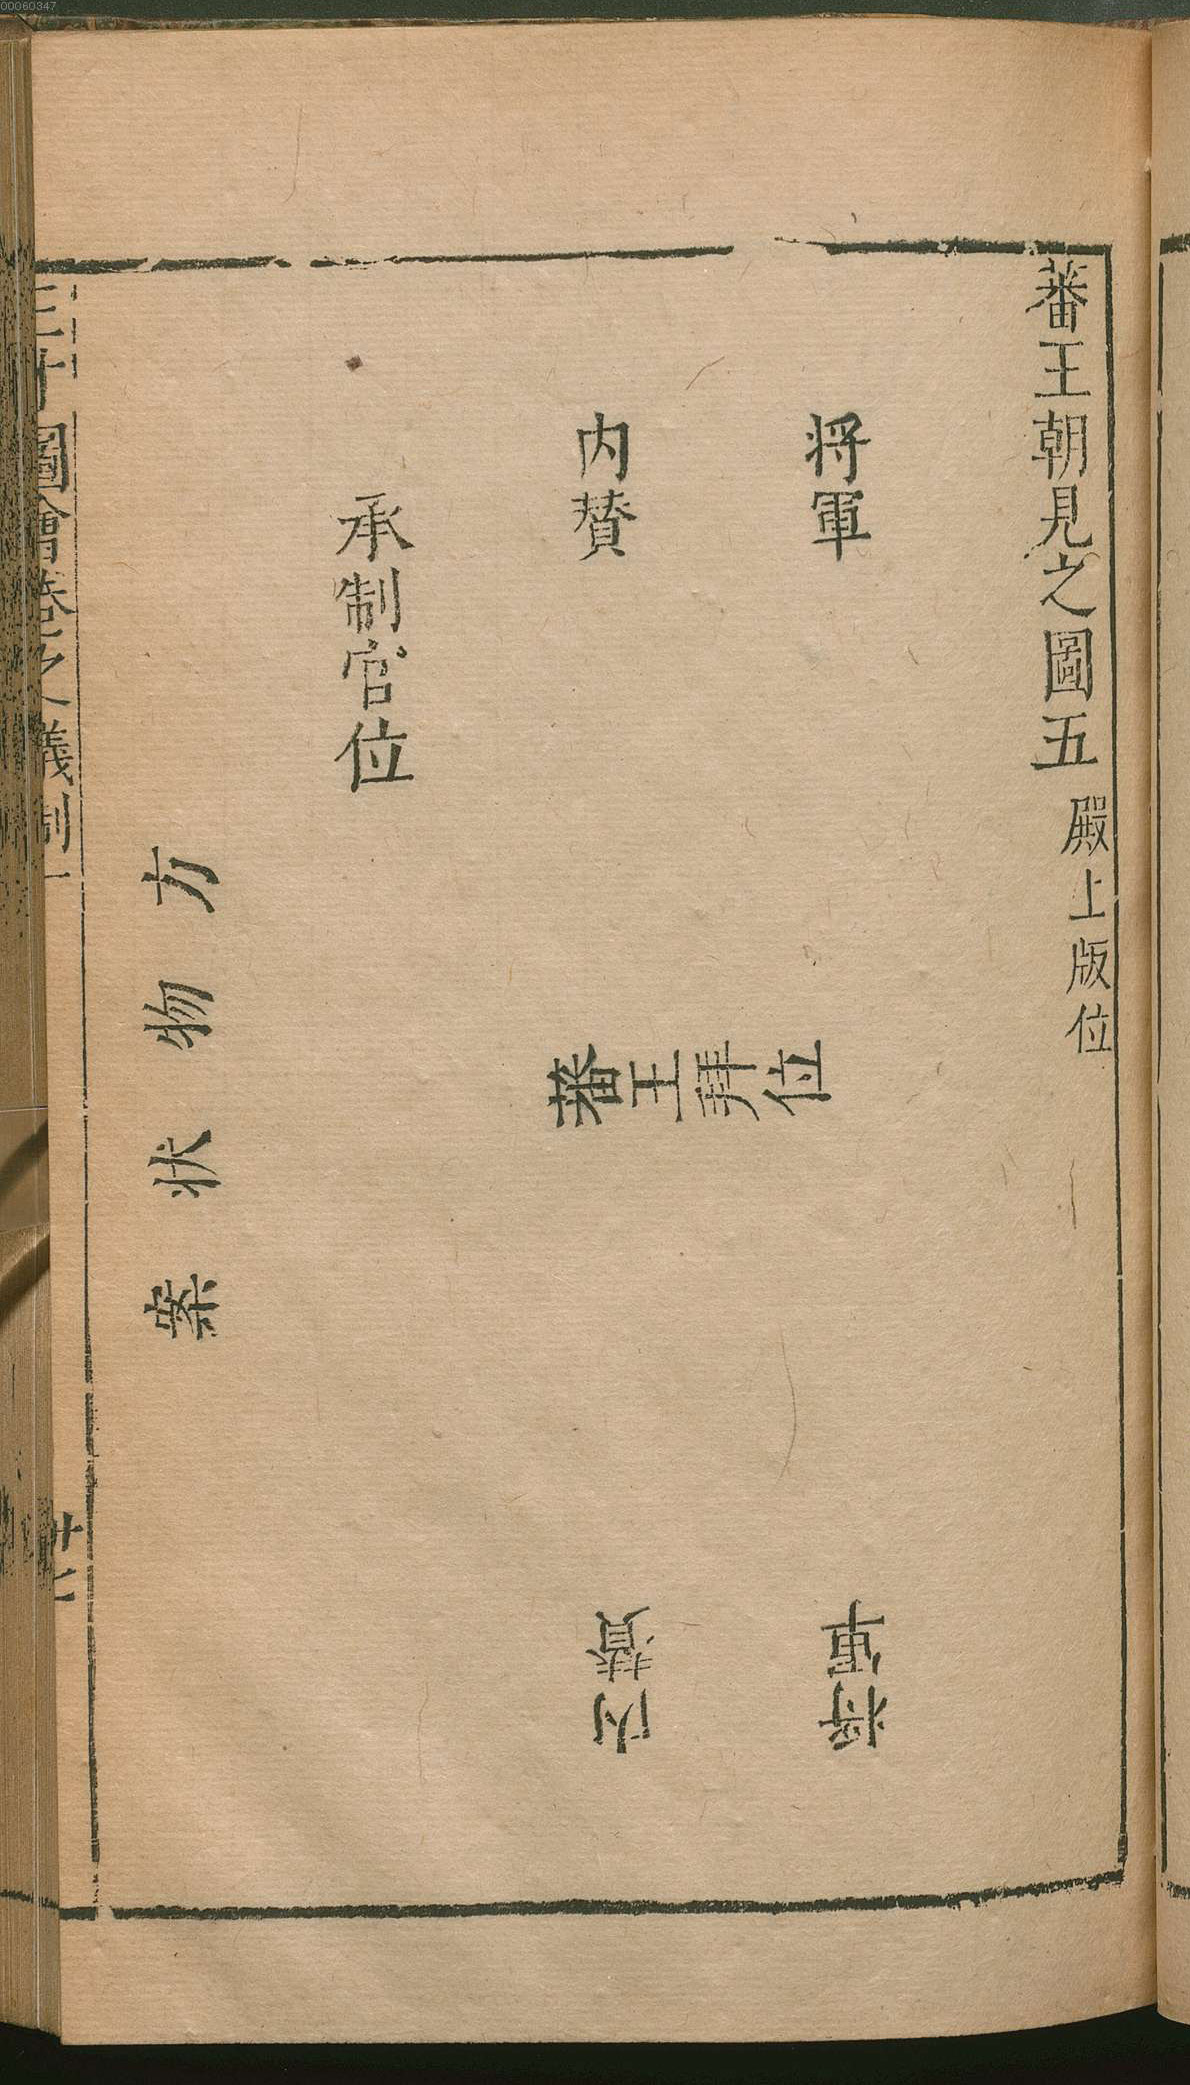 00060347
蕃王朝見之圖五 殿上版位
将軍
内贊
承制官位
蕃王拜位
方物状案
将軍
内贊
三才圖會卷之儀制一
十七